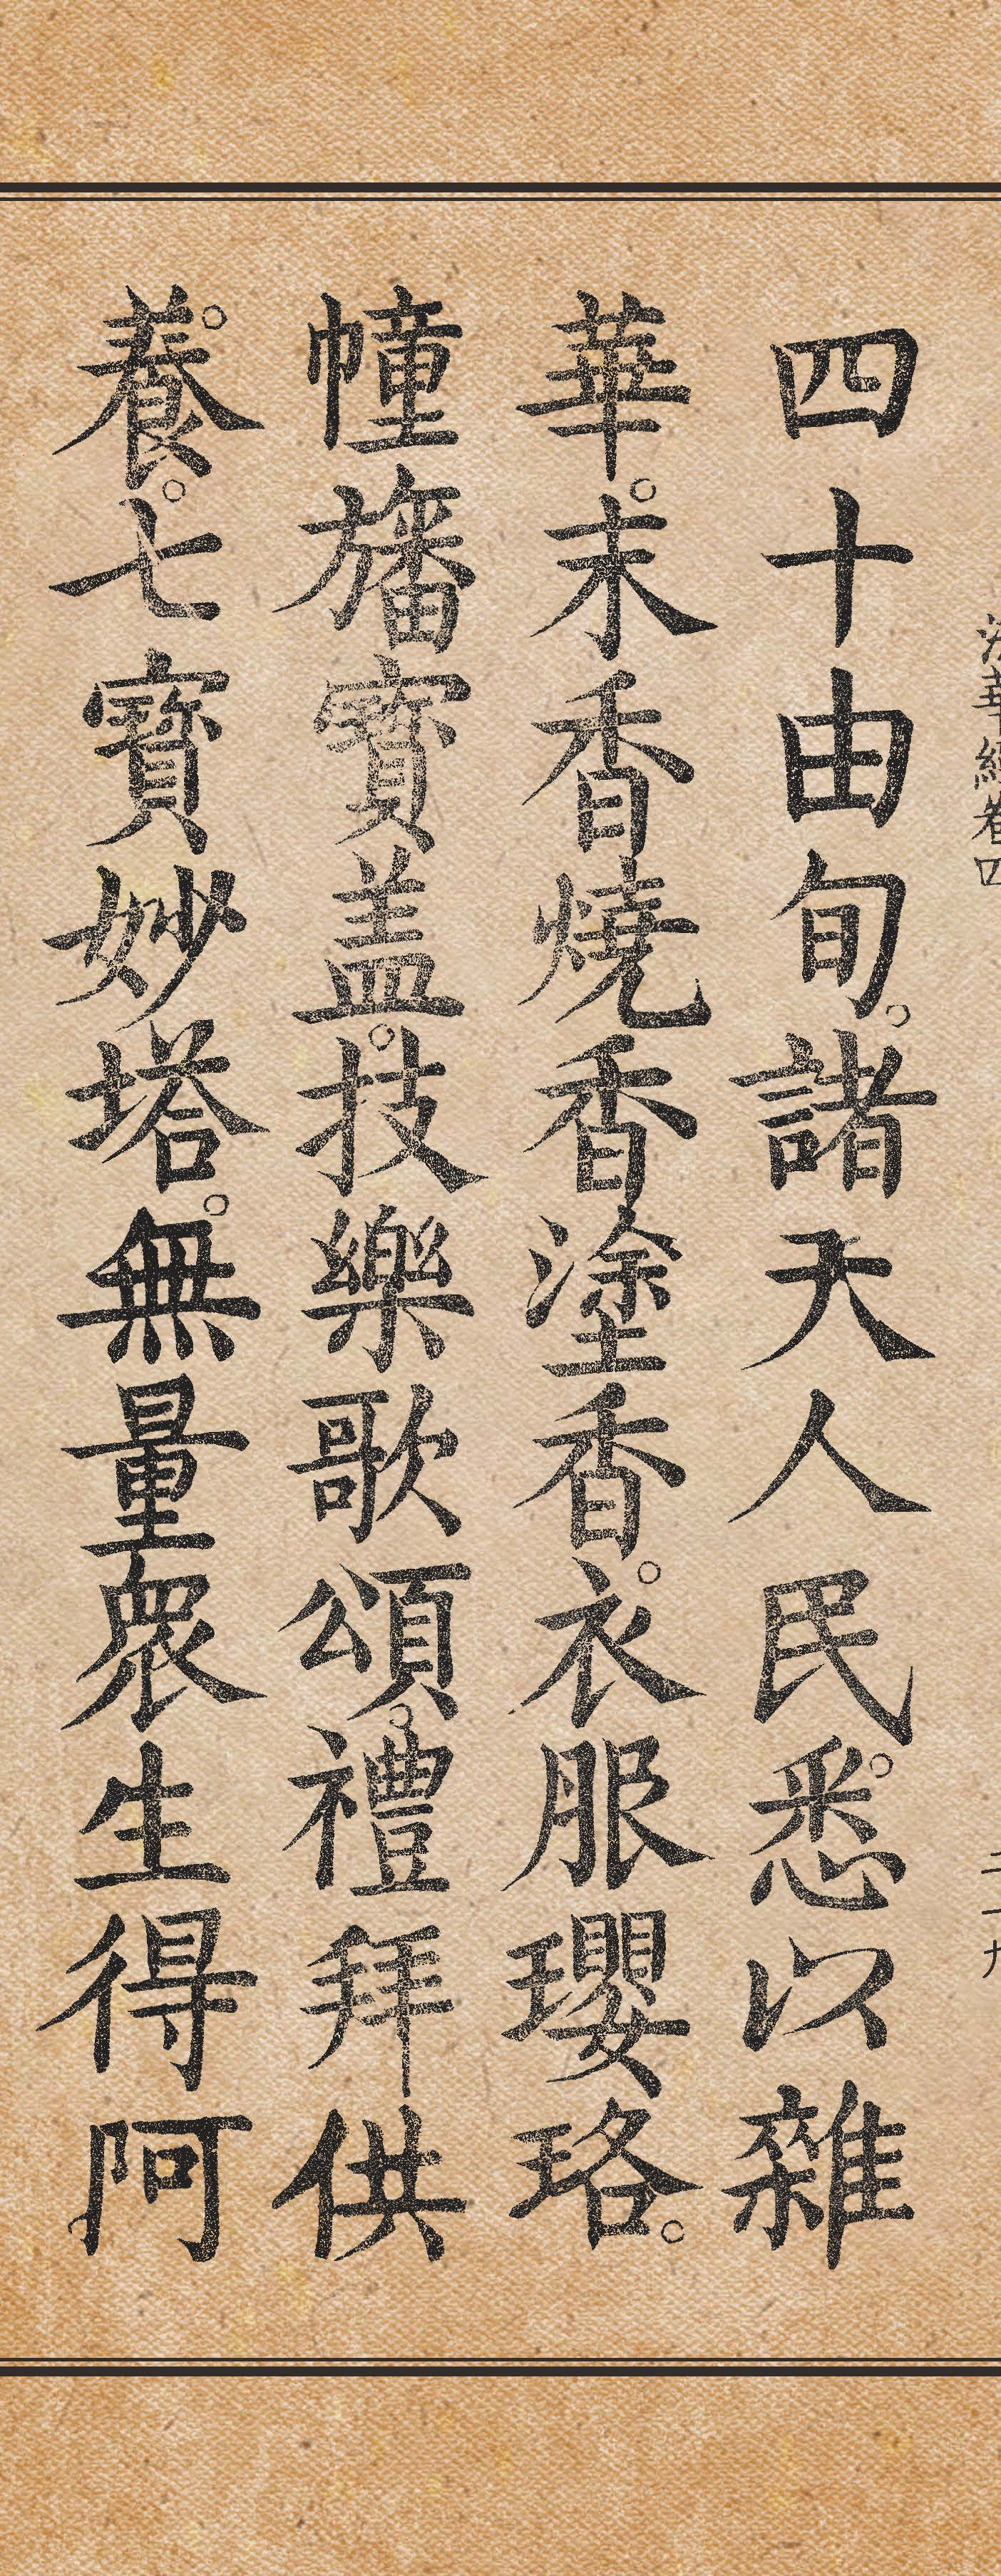 法華經卷四
二十九
四十由旬。諸天人民。悉以雜
華。末香燒香塗香。衣服瓔珞。
幢旛寶盖。技樂歌頌。禮拜供
養。七寶妙塔。無量衆生得阿